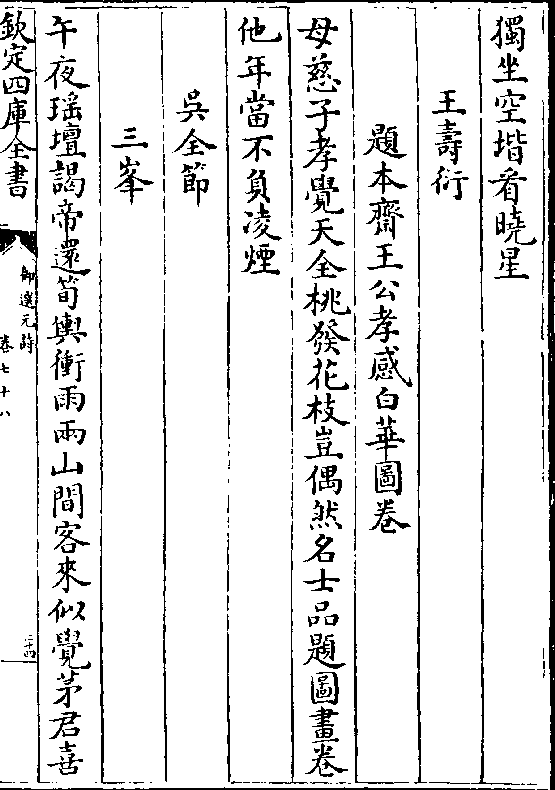 獨坐空堦看曉星
王壽衍
題本齋王公孝感白華圖卷
母慈子孝覺天全桃發花枝豈偶然名士品題圖畫卷
他年當不負凌煙
吳全節
三峯
午夜瑶壇謁帝還筍輿衝雨兩山間客來似覺茅君喜
欽定四庫全書
御選元詩
卷七十八
二十四